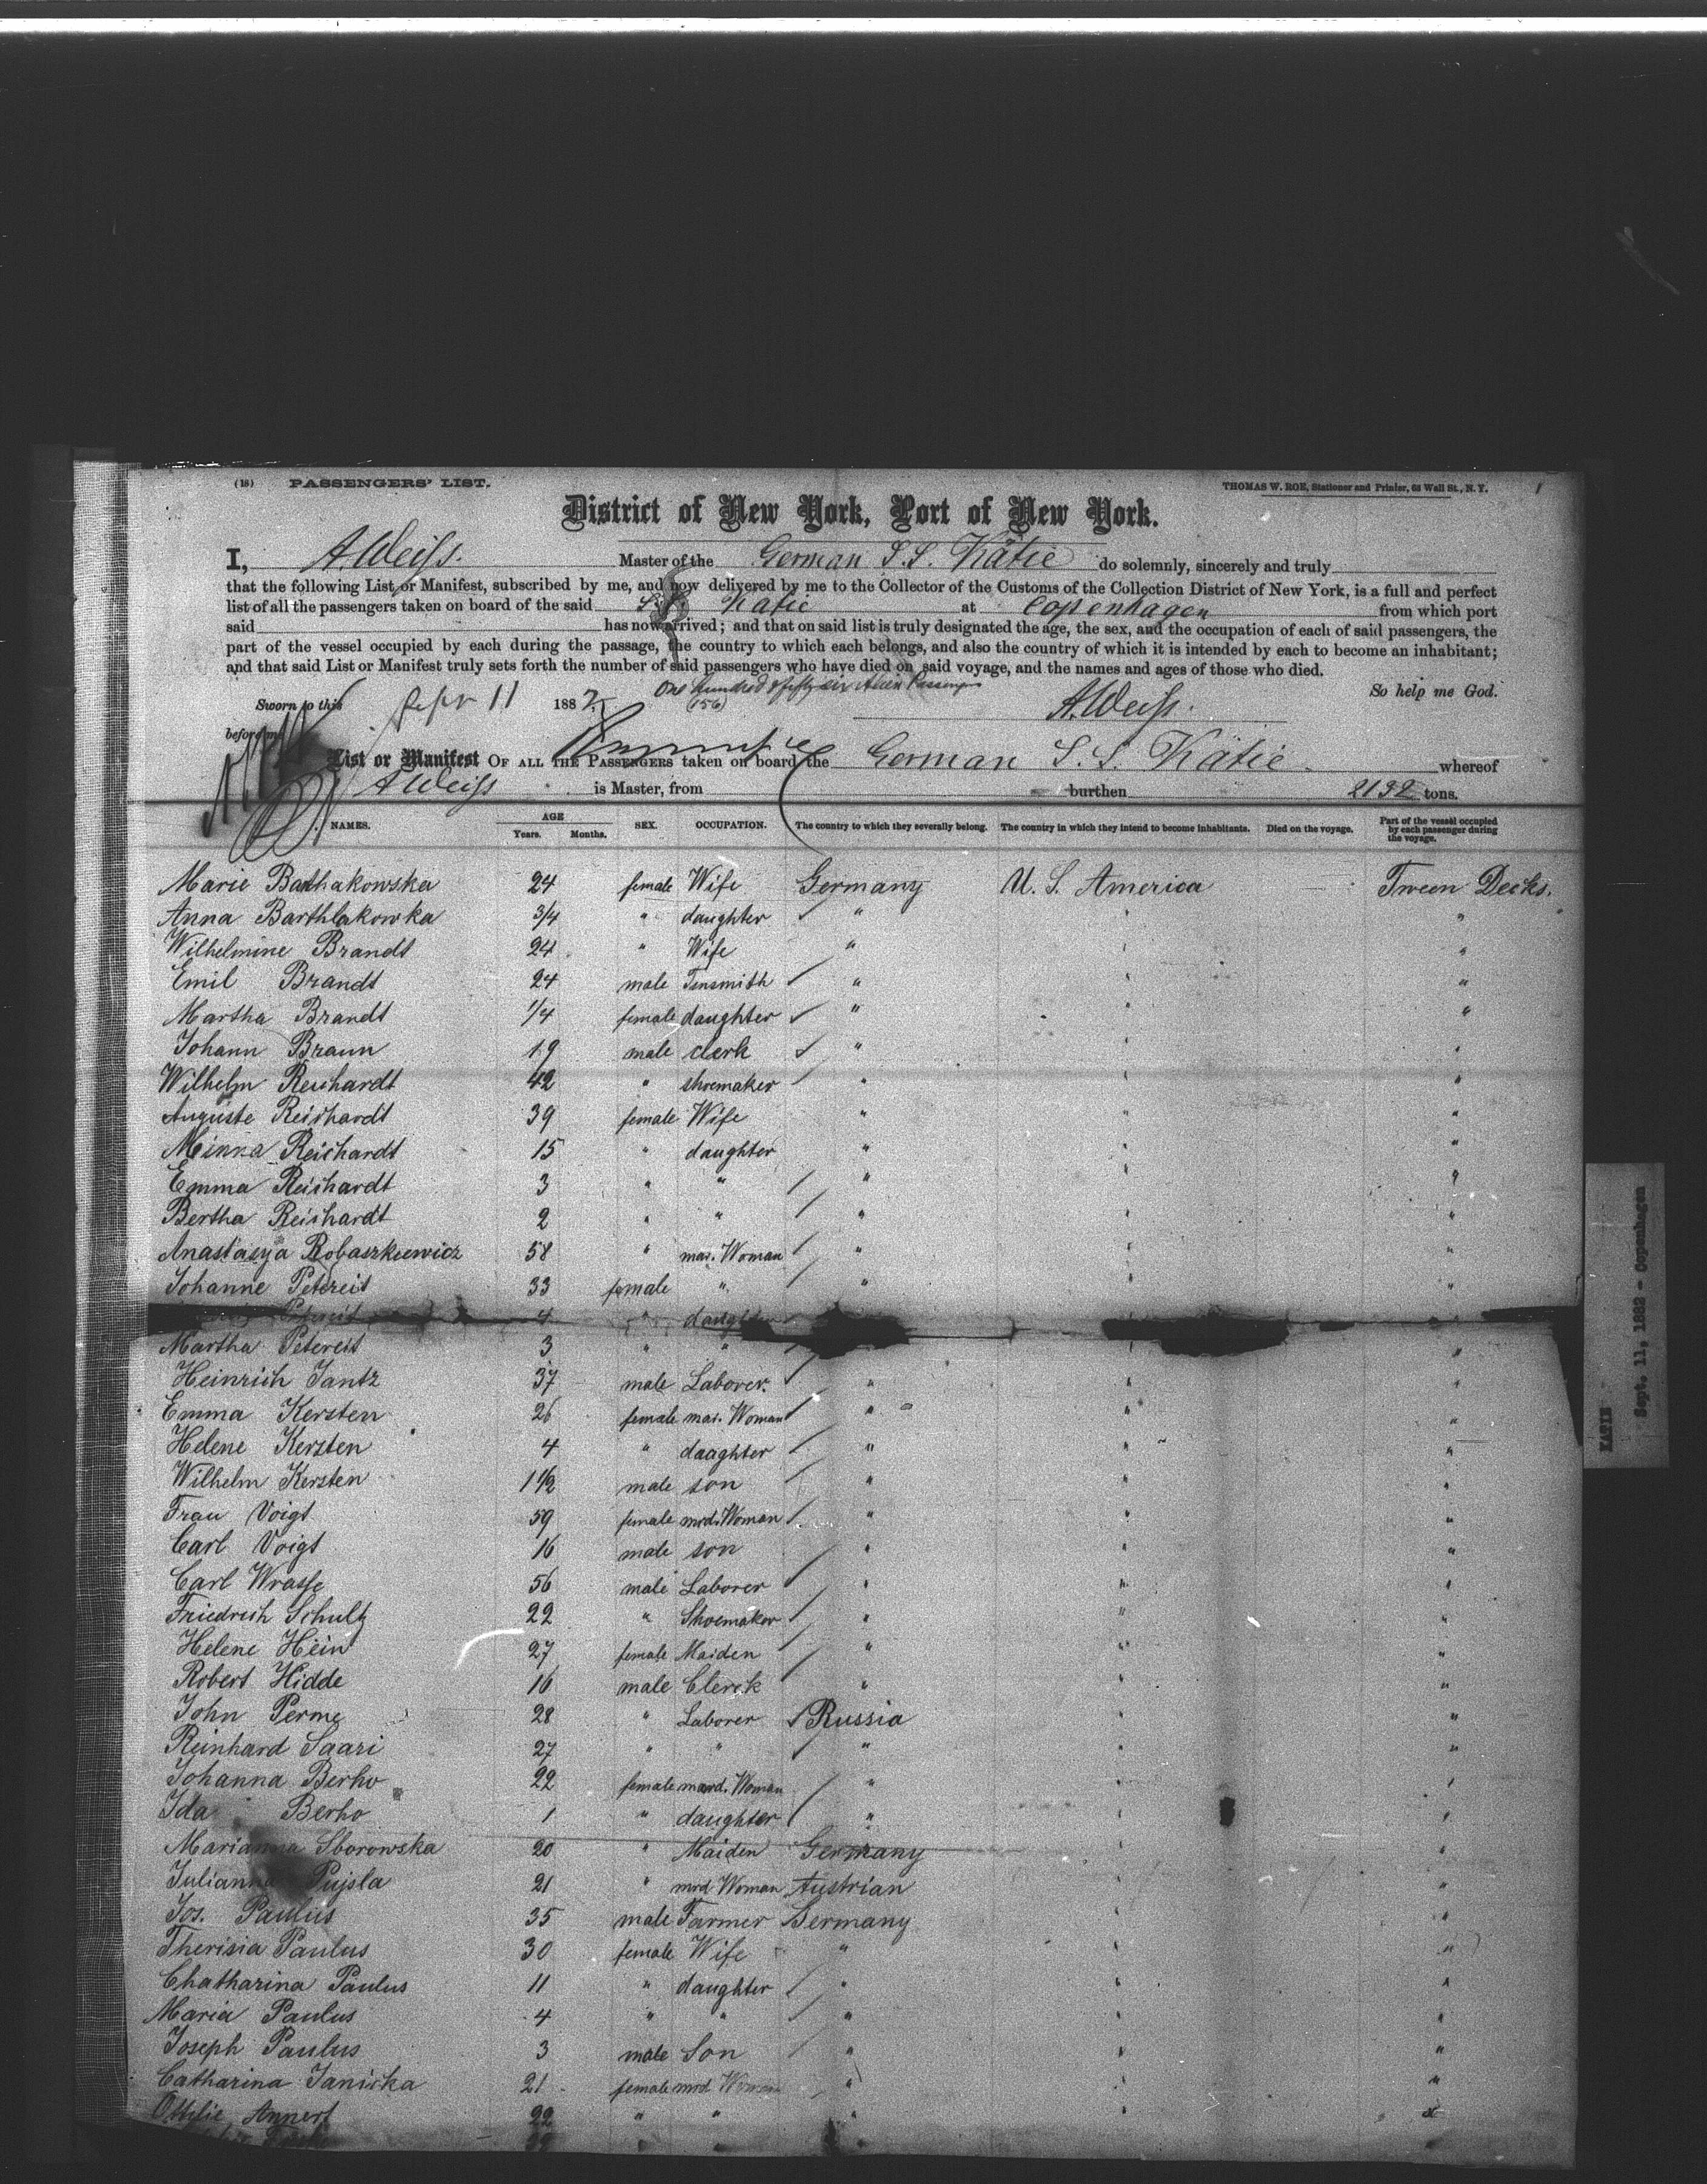 (18) PASSENGERS' LIST.
THOMAS W. ROE, Stationer and Printer, 63 Wall St., N. Y. 1
District of New York, Port of New York.
I, A. Weiss. Master of the German S.S. Kätie do solemnly, sincerely and truly
that the following List or Manifest, subscribed by me, and now delivered by me to the Collector of the Customs of the Collection District of New York, is a full and perfect
list of all the passengers taken on board of the said S.S. Katie at Copenhagen from which port
said has now arrived; and that on said list is truly designated the age, the sex, and the occupation of each of said passengers, the
part of the vessel occupied by each during the passage, the country to which each belongs, and also the country of which it is intended by each to become an inhabitant;
and that said List or Manifest truly sets forth the number of said passengers who have died on said voyage, and the names and ages of those who died.
One hundred & fifty six Alien Passengers
(156)
So help me God.
Sworn to this Sept 11 1882
A. Weiss.
before me
List or Manifest OF ALL THE PASSENGERS taken on board the German S.S. Kätie whereof
A Weiss is Master, from burthen 2132 tons.
NAMES. AGE Years. Months. SEX. OCCUPATION. The country to which they severally belong. The country in which they intend to become inhabitants. Died on the voyage. Part of the vessel occupied by each passenger during the voyage.
Marie Bathakowska 24 female Wife Germany U. S. America Tween Decks.
Anna Barthlakowka 3/4 " daughter " " "
Wilhelmine Brandt 24 " Wife " " "
Emil Brandt 24 male Tinsmith " " "
Martha Brandt 1/4 female daughter " " "
Johann Braun 19 male clerk " " "
Wilhelm Reichardt 42 " shoemaker " " "
Auguste Reichardt 39 female Wife " " "
Minna Reichardt 15 " daughter " " "
Emma Reichardt 3 " " " " "
Bertha Reichardt 2 " " " " "
Anastasya Robaszkiewicz 58 " mar. Woman " " "
Johanne Petereit 33 female " " " "
Petereit 4 " daughter
Martha Petereit 3 " " " "
Heinrich Jantz 37 male Laborer. " " "
Emma Kersten 26 female mar. Woman " " "
Helene Kersten 4 " daughter " " "
Wilhelm Kersten 1 1/2 male son " " "
Frau Voigt 59 female mrd. Woman " " "
Carl Voigt 16 male son " " "
Carl Wrasse 56 male Laborer " " "
Friedrich Schultz 22 " Shoemaker " " "
Helene Hein 27 female Maiden " " "
Robert Hidde 16 male Clerck " " "
John Perme 28 " Laborer Russia " "
Reinhard Saari 27 " " " " "
Johanna Berho 22 female mard. Woman " " "
Ida Berho 1 " daughter " " "
Marianna Sborowska 20 " Maiden Germany " "
Julianna Pujsla 21 " mrd Woman Austrian " "
Jos. Paulus 35 male Farmer Germany " "
Therisia Paulus 30 female Wife " " "
Chatharina Paulus 11 " daughter " " "
Maria Paulus 4 " " " " "
Joseph Paulus 3 male Son " " "
Catharina Janicka 21 female mrd Woman " " "
Ottilie Annert 22 " " " " "
KATIE
Sept. 11, 1882 - Copenhagen